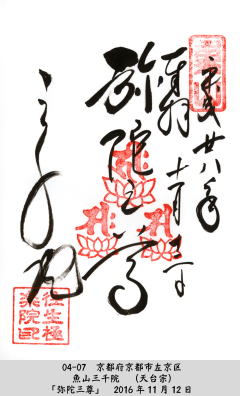 奉拝
平成廿八年
十一月十二日
弥陀三尊
三千院
往生極
楽院印
04-07　京都府京都市左京区
魚山三千院　（天台宗）
「弥陀三尊」　2016年11月12日